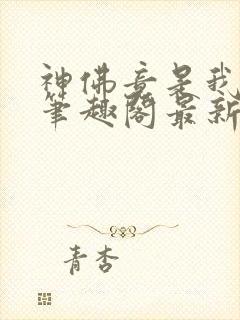 神佛竟是我
笔趣阁最新
青杏